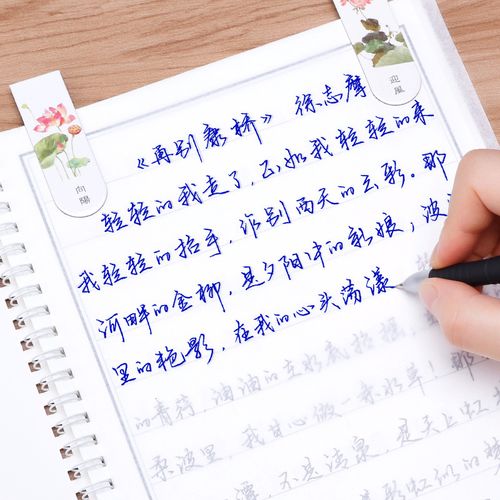 向陽
迎風
《再别康桥》 徐志摩
轻轻的我走了，正如我轻轻的来
我轻轻的招手，作别西天的云彩。那
河畔的金柳，是夕阳中的新娘；波
里的艳影，在我的心头荡漾
的青荇，油油的在水底招摇，
柔波里，我甘心做一条水草！那
潭，不是清泉，是天上虹